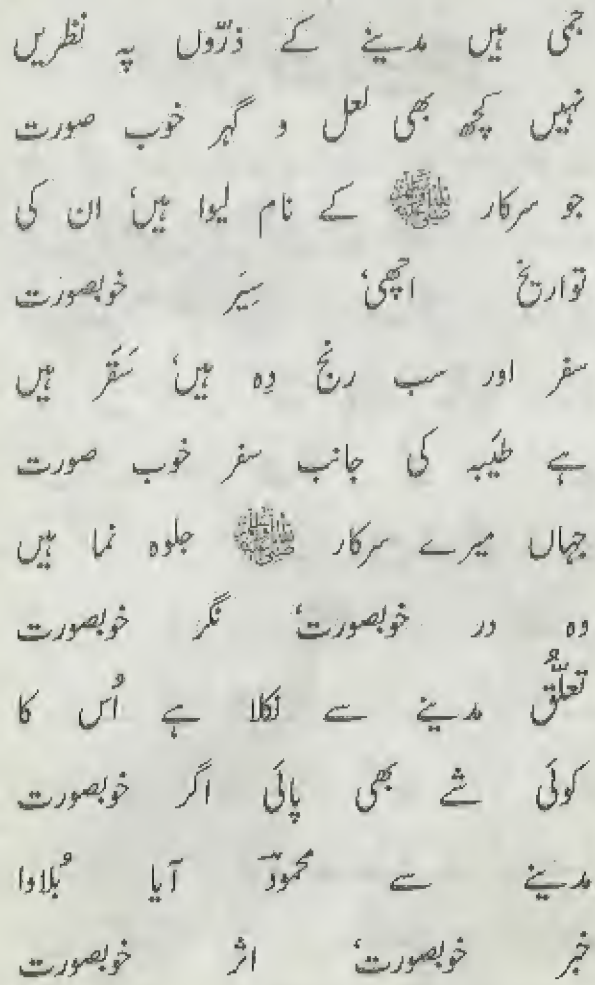 جمی ہیں مدینے کے ذرّوں پہ نظریں
نہیں کچھ بھی لعل و گہر خوب صورت
جو سرکار ﷺ کے نام لیوا ہیں، ان کی
تواریخ اچھی، سِیَر خوبصورت
سفر اور سب رنج دہ ہیں، سَقَر ہیں
ہے طیَبہ کی جانب سفر خوب صورت
جہاں میرے سرکار ﷺ جلوہ نما ہیں
وہ در خوبصورت، نگر خوبصورت
تعلّق مدینے سے نکلا ہے اُس کا
کوئی شے بھی پائی اگر خوبصورت
مدینے سے محمودؔ آیا بُلاوا
خبر خوبصورت، اثر خوبصورت